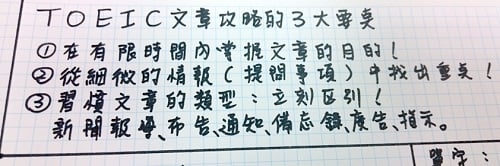 TOEIC文章攻略的3大要點
①在有限時間內掌握文章的目的!
②從細微的情報(提問事項)中找出重點!
③習慣文章的類型:立刻区別!
新聞報導、布告、通知、備忘錄、廣告、指示。
單字: